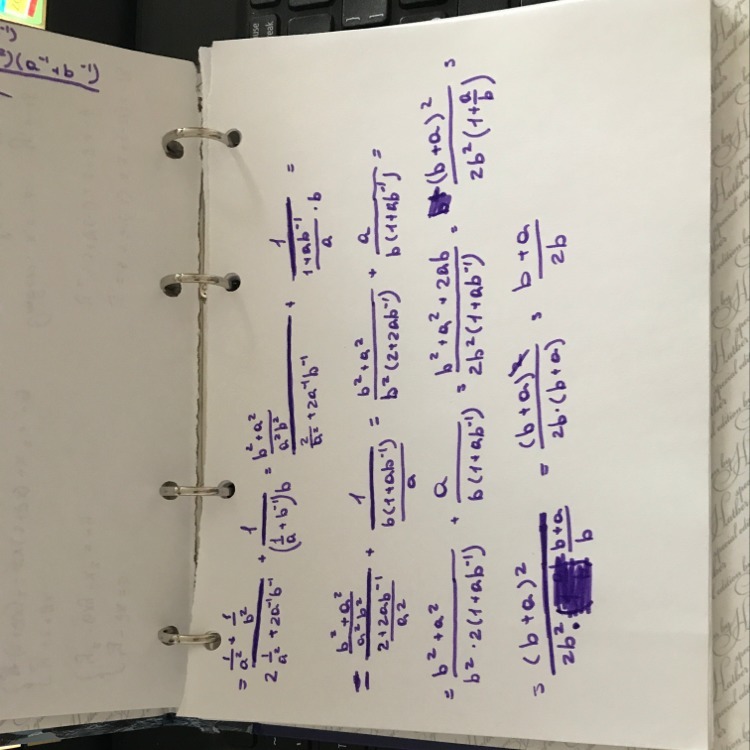 = (1/a² + 1/b²)/(2 1/a² + 2a⁻¹b⁻¹) + 1/((1/a + b⁻¹)b) = ((b²+a²)/(a²b²))/(2/a² + 2a⁻¹b⁻¹) + 1/((1+ab⁻¹)/a · b) =
= ((b²+a²)/(a²b²))/((2+2ab⁻¹)/a²) + 1/((b(1+ab⁻¹))/a) = (b²+a²)/(b²(2+2ab⁻¹)) + a/(b(1+ab⁻¹)) =
= (b²+a²)/(b²·2(1+ab⁻¹)) + a/(b(1+ab⁻¹)) = (b²+a²+2ab)/(2b²(1+ab⁻¹)) = (b+a)²/(2b²(1+a/b)) =
= (b+a)²/(2b²·(b+a)/b) = (b+a)²/(2b·(b+a)) = (b+a)/(2b)
(a⁻¹+b⁻¹)